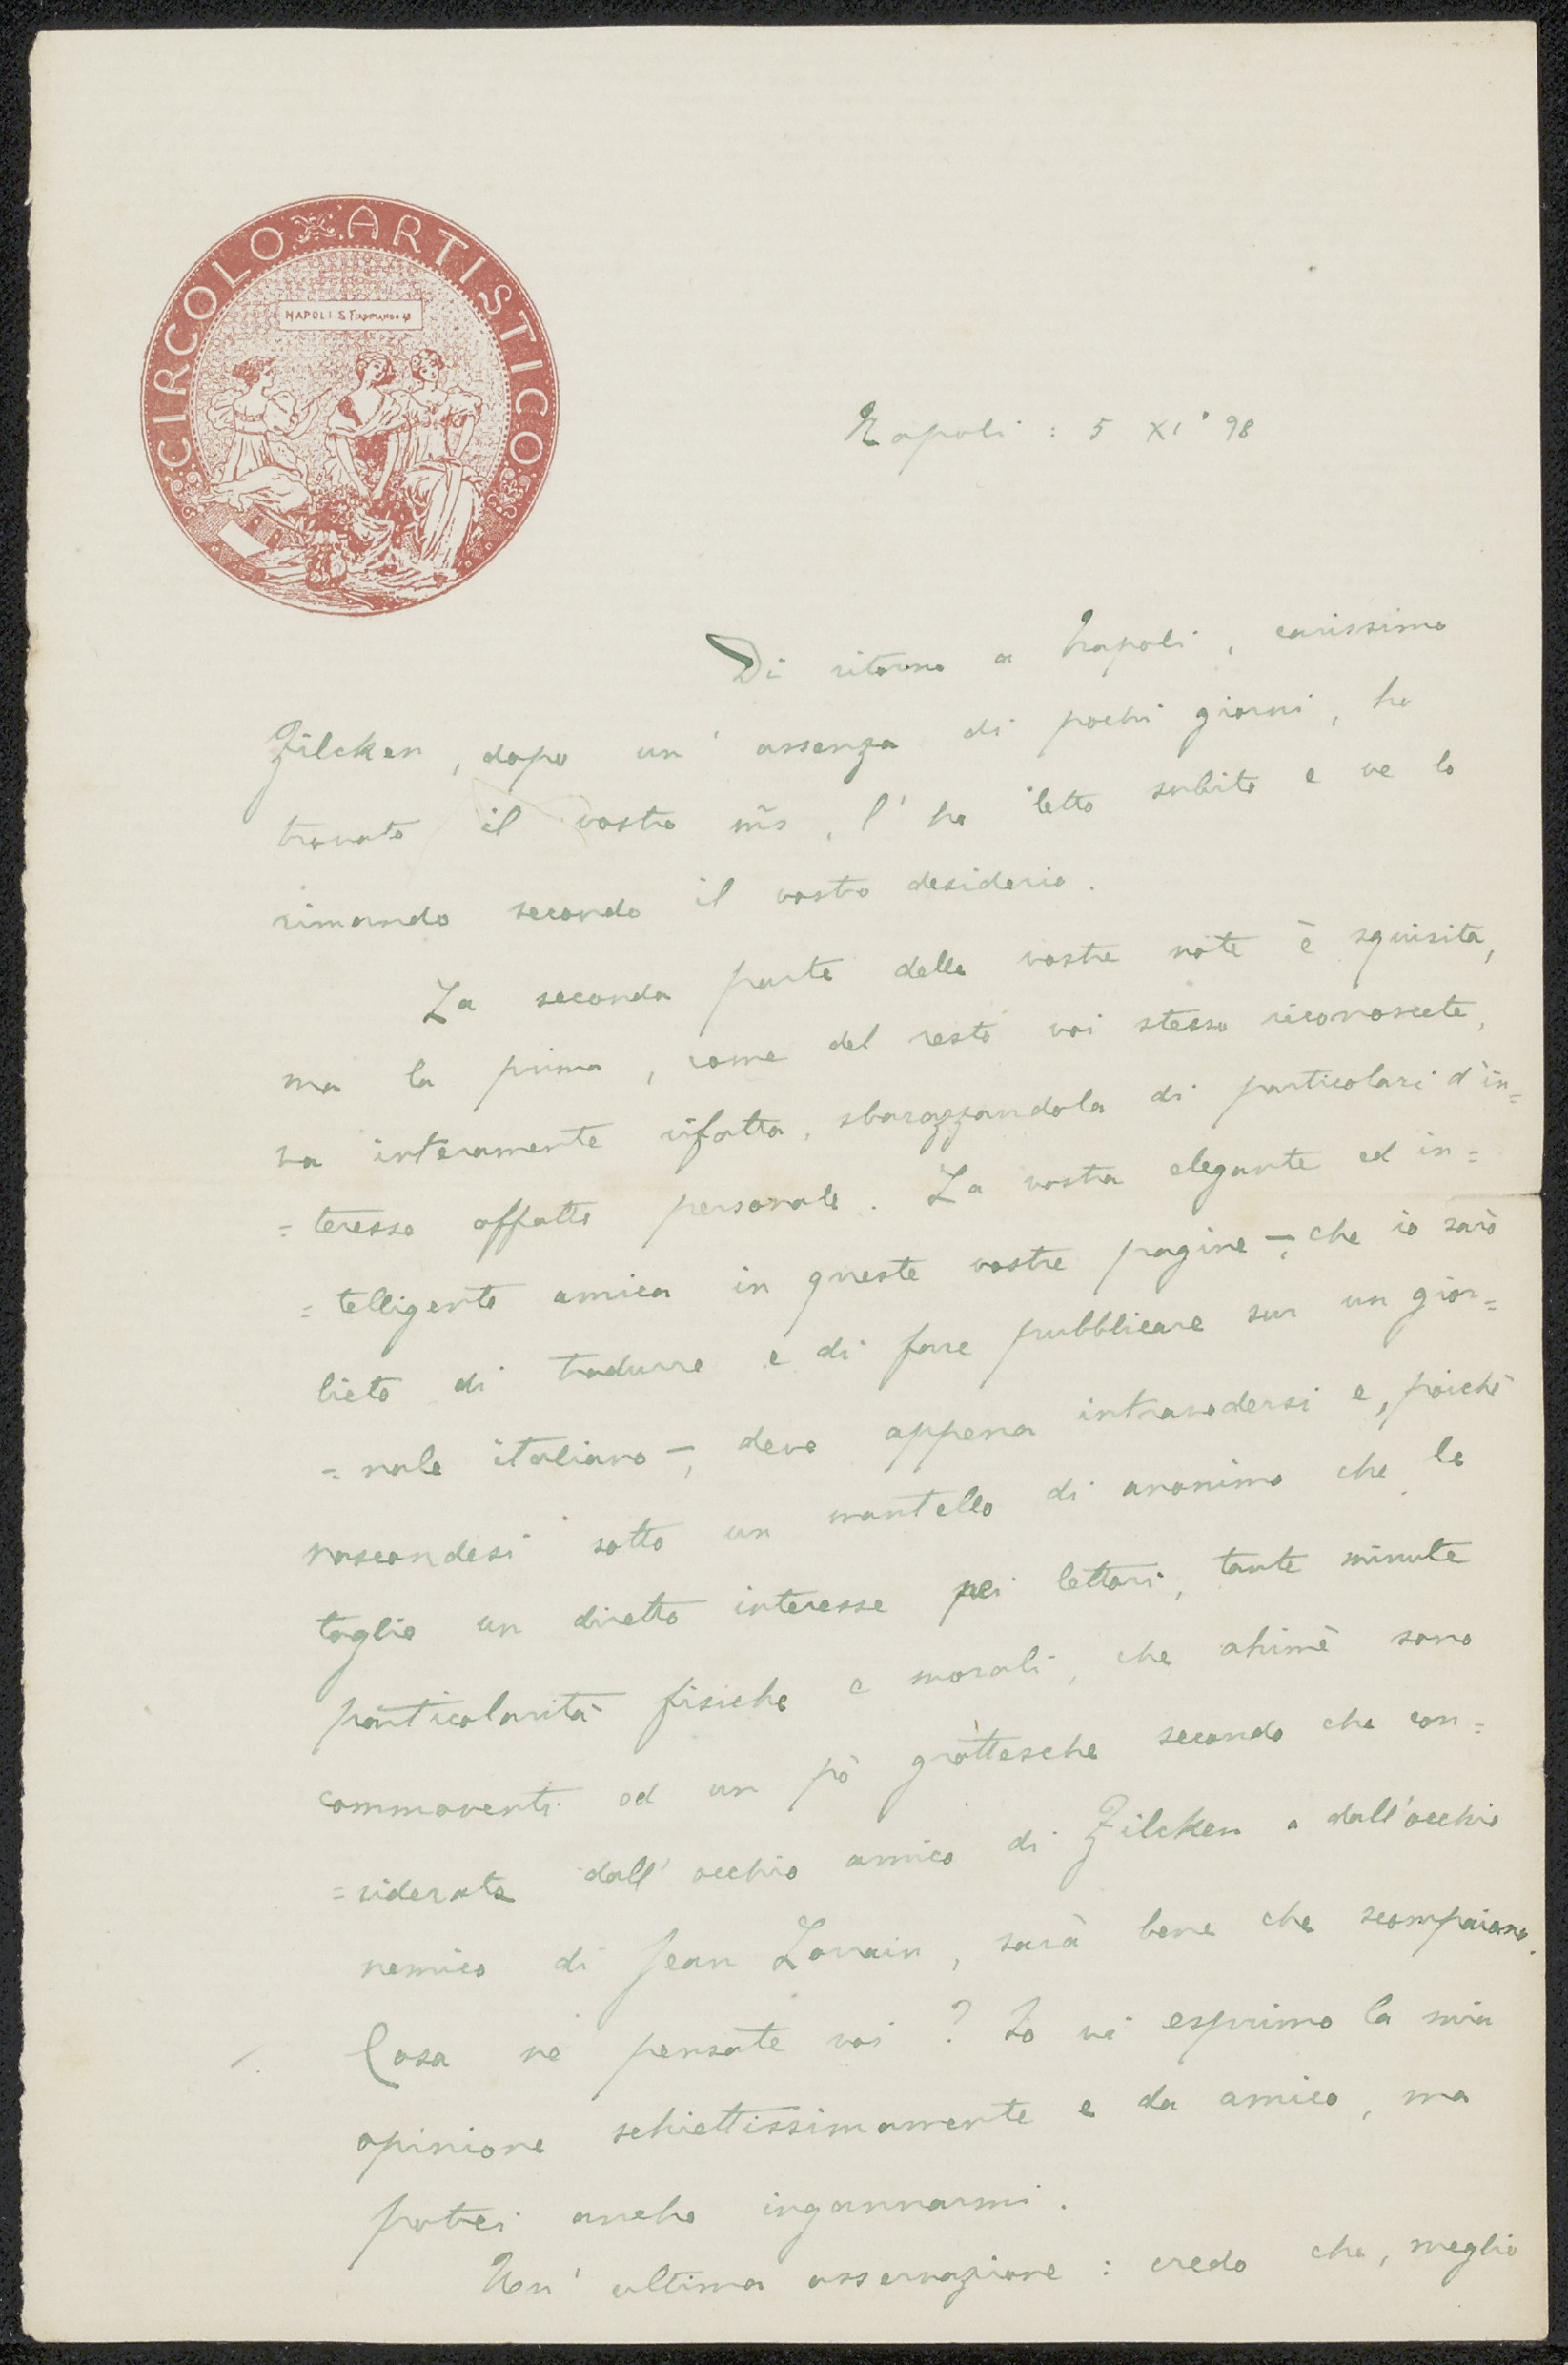 CIRCOLO ARTISTICO
NAPOLI S. Ferdinando
Napoli : 5 XI '98
Di ritorno a Napoli, carissimo
Zilcken, dopo un' assenza di pochi giorni, ho
trovato il vostro m̃s, l' ho letto subito e ve lo
rimando secondo il vostro desiderio.
La seconda parte delle vostre note è squisita,
ma la prima, come del resto voi stesso riconoscete,
va interamente rifatta, sbarazzandola di particolari d'in=
=teresse affatto personale. La vostra elegante ed in=
=telligente amica in queste vostre pagine —, che io sarò
lieto di tradurre e di fare pubblicare sur un gior=
=nale italiano —, deve appena intravedersi e, poichè
nascondesi sotto un mantello di anonimo che le
toglie un diretto interesse pei lettori, tante minute
particolarità fisiche e morali, che ahimè sono
commoventi od un pò grottesche secondo che con=
=siderate dall' occhio amico di Zilcken o dall'occhio
nemico di Jean Lorrain, sarà bene che scompaiano.
Cosa ne pensate voi? Io vi esprimo la mia
opinione schiettissimamente e da amico, ma
potrei anche ingannarmi.
Un' ultima osservazione : credo che, meglio